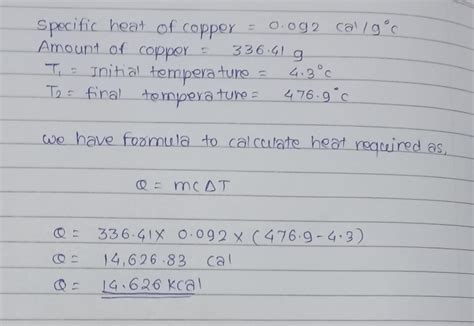 Specific heat of copper = 0.092 cal/g°c
Amount of copper = 336.41 g
T₁ = Initial temperature = 4.3°c
T₂ = final temperature = 476.9°c
we have formula to calculate heat required as,
Q = mCΔT
Q = 336.41 × 0.092 × (476.9 - 4.3)
Q = 14,626.83 cal
Q = 14.626 kcal